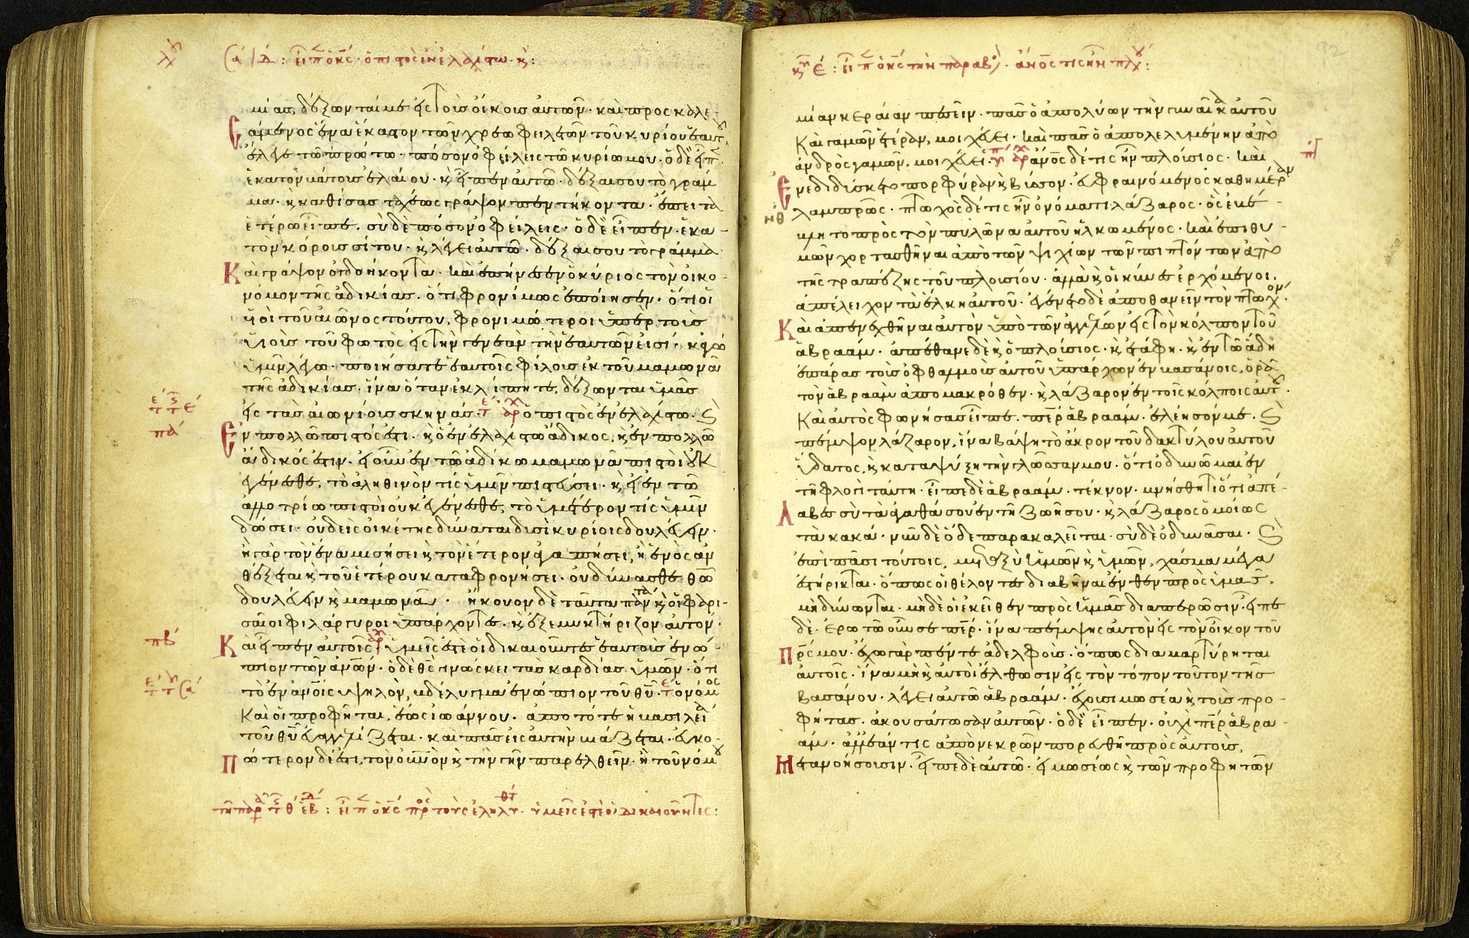 μίας, δέξωνταί με εἰς τοὺς οἴκους αὐτῶν· καὶ προσκαλε-
σάμενος ἕνα ἕκαστον τῶν χρεωφειλετῶν τοῦ κυρίου ἑαυτ
ἔλεγε τῶ πρώτω· πόσον ὀφείλεις τῶ κυρίω μου· ὁ δὲ εἶπ
ἑκατὸν βάτους ἐλαίου· κ εἶπεν αὐτῶ· δέξαι σου τὸ γράμ
μα· κ καθίσας ταχέως γράψον πεντήκοντα· ἔπειτα
ἑτέρω εἶπε· σὺ δὲ πόσον ὀφείλεις· ὁ δὲ εἶπεν· ἑκα-
τὸν κόρους σίτου· κ λέγει αὐτῶ· δέξαι σου τὸ γράμμα
Καὶ γράψον ὀγδοήκοντα· καὶ ἐπήνεσεν ὁ κύριος τὸν οἰκο-
νόμον τῆς ἀδικίας· ὅτι φρονίμως ἐποίησεν· ὅτι οἱ
υἱοὶ τοῦ αἰῶνος τούτου, φρονιμώτεροι ὑπὲρ τοὺς
υἱοὺς τοῦ φωτὸς εἰς τὴν γενεὰν τὴν ἑαυτῶν εἰσί· κἀγὼ
ὑμῖν λέγω· ποιήσατε ἑαυτοῖς φίλους ἐκ τοῦ μαμωνᾶ
τῆς ἀδικίας· ἵνα ὅταν ἐκλίπητε, δέξωνται ὑμᾶς
εἰς τὰς αἰωνίους σκηνάς· ὁ πιστὸς ἐν ἐλαχίστω·
Ἐν πολλῶ πιστός ἐστι· κ ὁ ἐν ἐλαχίστω ἄδικος, κ ἐν πολλῶ
ἄδικός ἐστιν· εἰ οὖν ἐν τῶ ἀδίκω μαμωνᾶ πιστοὶ οὐκ
ἐγένεσθε, τὸ ἀληθινὸν τίς ὑμῖν πιστεύσει· κ εἰ ἐν τῶ
ἀλλοτρίω πιστοὶ οὐκ ἐγένεσθε, τὸ ὑμέτερον τίς ὑμῖν
δώσει· οὐδεὶς οἰκέτης δύναται δυσὶ κυρίοις δουλεύειν·
ἢ γὰρ τὸν ἕνα μισήσει κ τὸν ἕτερον ἀγαπήσει, ἢ ἑνὸς ἀν
θέξεται κ τοῦ ἑτέρου καταφρονήσει· οὐ δύνασθε θῶ
δουλεύειν κ μαμωνᾶ· ἤκουον δὲ ταῦτα πάντα κ οἱ φαρι-
σαῖοι φιλάργυροι ὑπάρχοντες· κ ἐξεμυκτήριζον αὐτόν·
Καὶ εἶπεν αὐτοῖς ὑμεῖς ἐστὲ οἱ δικαιοῦντες ἑαυτοὺς ἐνώ-
πιον τῶν ἀνων· ὁ δὲ θς γινώσκει τὰς καρδίας ὑμῶν· ὅτι
τὸ ἐν ἀνοις ὑψηλὸν, βδέλυγμα ἐνώπιον τοῦ θυ· ὁ νόμος
Καὶ οἱ προφῆται, ἕως ἰωάννου· ἀπὸ τότε ἡ βασιλεία
τοῦ θυ εὐαγγελίζεται· καὶ πᾶς εἰς αὐτὴν βιάζεται· εὐκο-
πώτερον δέ ἐστι, τὸν οὐνον κ τὴν γῆν παρελθεῖν· ἢ τοῦ νόμου
μίαν κεραίαν πεσεῖν· πᾶς ὁ ἀπολύων τὴν γυναῖκα αὐτοῦ
Καὶ γαμῶν ἑτέραν, μοιχεύει· καὶ πᾶς ὁ ἀπολελυμένην ἀπὸ
ἀνδρὸς γαμῶν, μοιχεύει· ἄνος δέ τις ἦν πλούσιος· καὶ
Ἐνεδιδύσκετο πορφύραν κ βύσσον· εὐφραινόμενος καθημέραν
λαμπρῶς· πτωχὸς δέ τις ἦν ὀνόματι λάζαρος· ὃς ἐβέ-
βλητο πρὸς τὸν πυλῶνα αὐτοῦ ἡλκωμένος· καὶ ἐπιθυ-
μῶν χορτασθῆναι ἀπὸ τῶν ψιχίων τῶν πιπτόντων ἀπὸ
τῆς τραπέζης τοῦ πλουσίου· ἀλλὰ κ οἱ κύνες ἐρχόμενοι,
ἀπέλειχον τὰ ἕλκη αὐτοῦ· ἐγένετο δὲ ἀποθανεῖν τὸν πτωχόν·
Καὶ ἀπενεχθῆναι αὐτὸν ὑπὸ τῶν ἀγγέλων εἰς τὸν κόλπον τοῦ
ἀβραάμ· ἀπέθανε δὲ κ ὁ πλούσιος· κ ἐτάφη· κ ἐν τῶ ἅδη
ἐπάρας τοὺς ὀφθαλμοὺς αὐτοῦ ὑπάρχων ἐν βασάνοις, ὁρᾶ
τὸν ἀβραὰμ ἀπὸ μακρόθεν· κ λάζαρον ἐν τοῖς κόλποις αὐτ
Καὶ αὐτὸς φωνήσας εἶπε· περ ἀβραάμ· ἐλέησόν με·
πέμψον λάζαρον, ἵνα βάψη τὸ ἄκρον τοῦ δακτύλου αὐτοῦ
ὕδατος, κ καταψύξη τὴν γλῶσσάν μου· ὅτι ὀδυνῶμαι ἐν
τῆ φλογὶ ταύτη· εἶπε δὲ ἀβραάμ· τέκνον· μνήσθητι ὅτι ἀπέ-
λαβες σὺ τὰ ἀγαθά σου ἐν τῆ ζωῆ σου· κ λάζαρος ὁμοίως
τὰ κακά· νῦν δὲ ὅδε παρακαλεῖται· σὺ δὲ ὀδυνᾶσαι·
ἐπὶ πᾶσι τούτοις, μεταξὺ ἡμῶν κ ὑμῶν, χάσμα μέγα
ἐστήρικται· ὅπως οἱ θέλοντες διαβῆναι ἔνθεν πρὸς ὑμᾶς,
μὴ δύνωνται· μηδὲ οἱ ἐκεῖθεν πρὸς ἡμᾶς διαπερῶσιν· εἶπε
δὲ· ἐρωτῶ οὖν σε περ· ἵνα πέμψης αὐτὸν εἰς τὸν οἶκον τοῦ
πρς μου· ἔχω γὰρ πέντε ἀδελφούς· ὅπως διαμαρτύρηται
αὐτοῖς· ἵνα μὴ κ αὐτοὶ ἔλθωσιν εἰς τὸν τόπον τοῦτον τῆς
βασάνου· λέγει αὐτῶ ἀβραάμ· ἔχουσι μωσέα κ τοὺς προ-
φήτας· ἀκουσάτωσαν αὐτῶν· ὁ δὲ εἶπεν· οὐχὶ περ ἀβρα-
άμ· ἀλλ ἐάν τις ἀπὸ νεκρῶν πορευθῆ πρὸς αὐτοὺς,
Μετανοήσουσιν· εἶπε δὲ αὐτῶ· εἰ μωσέως κ τῶν προφητῶν